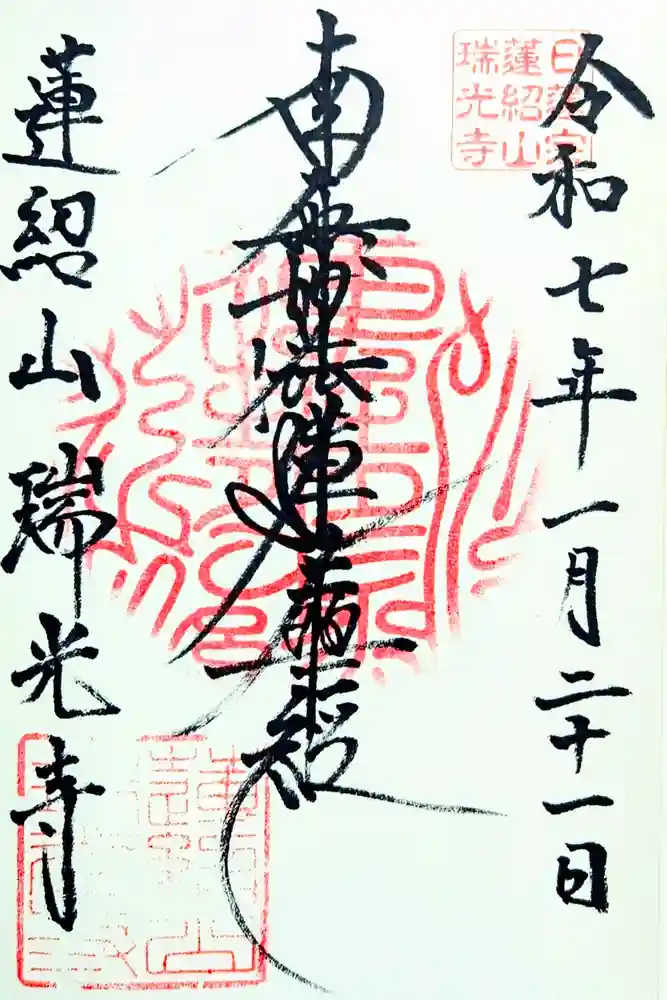 令和七年一月二十一日
日蓮宗
蓮紹山
瑞光寺
南無妙法蓮華経
蓮紹山瑞光寺